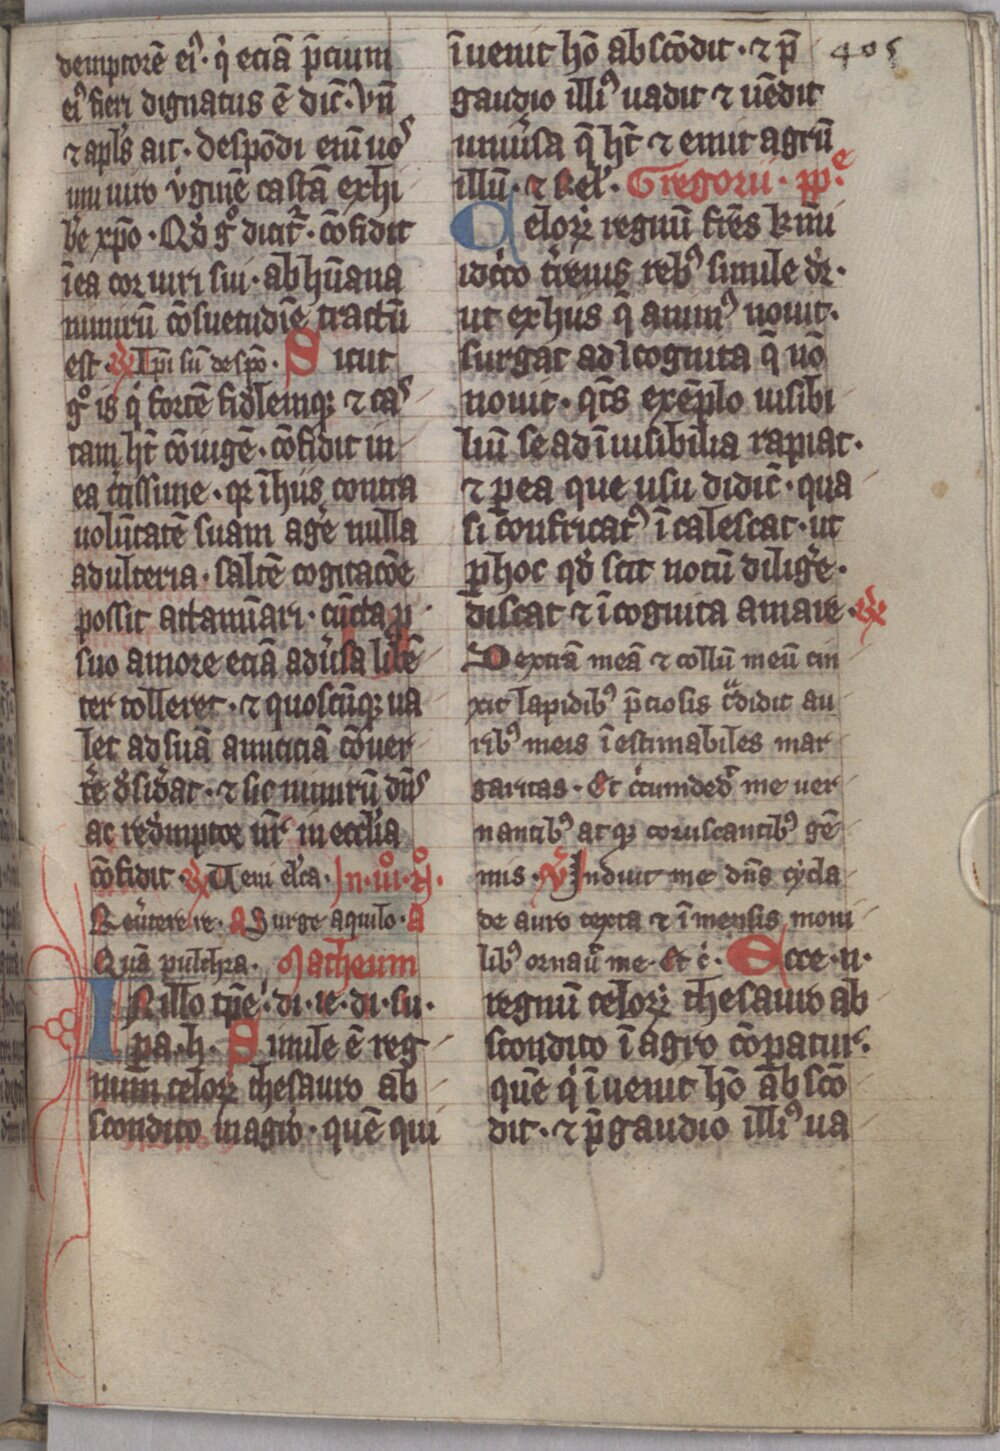 demptorē ei᾽· q̇ eciā p̄cium
ei᾽ fieri dignatus ē dic̄· vn̄
⁊ apl's ait· despōdi eiū uo᾽
uni uiro v̓ginē castā exhi
b'e xp̄o· Qd̓ g° dicit᾽· cōfidit
ī ea cor uiri sui· ab hūana
nimirū cōsuetudīe tractū
est· ℟ Ipi sū despō· Sicut
g° is q̇ fortē fidlemq; ⁊ cas᾽
tam ht̄ cōiugē· cōfidit in
ea c̓tissime· qr̄ ī hiis contra
uolūtatē suam agē nulla
adulteria· saltē cogitacōe
possit attamīari· cūcta p
suo amore eciā adu̓sa libē
ter tolleret· ⁊ quoscūq; ua
let ad suā amiciciā cōuer
te̓ d̓sid̓at· ⁊ sic nimirū dn̄s
ac red̓mptor nr̄ in eccl'ia
cōfidit· ℟ Ueni el'ca· In· iii°· N°·
Reu̓tere re· A Surge aquilo· A
Quā pulchra· Matheum
IN illo tp̄e· di· ie· di· su·
pa· h· Simile ē reg
num celor̄ thesauro ab
scondito in agro· quē qui
īuenit hō abscōdit· ⁊ p̄
gaudio illi᾽ uadit ⁊ uēdit
uniu̓sa q̄ ht̄ ⁊ emit agrū
illū· ⁊ Rel'· Gregorii· pp̄e·
Celor̄ regnū frēs k̄mi
idc̓co t̓renis reb᾽ simile dr̄·
ut ex hiis q̄ anim᾽ nouit·
surgat ad īcognita q̄ nō
nouit· qt̄s exēplo uisibi
liū se ad īuisibilia rapiat·
⁊ p ea que usu didic̄· qua
si confricat᾽ īcalescat· ut
p hoc qd̓ scit notū dilige̓·
discat ⁊ īcognita amare· ℟
Dextrā meā ⁊ collū meū cin
xit lapidib᾽ p̄ciosis tͣdidit au
rib᾽ meis īestimabiles mar
garitas· Et c̓cumded' me uer
nantib᾽ atq; coruscantib᾽ gē
mis· ℣ Induit me dn̄s cycla
de auro texta ⁊ īmensis moni
lib᾽ ornau̓ me· Et c̓· Ecce· n·
regnū celor̄ thesauro ab
scondito ī agro cōpatur·
quē q̇ īuenit hō abscō
dit· ⁊ p̄ gaudio illi᾽ ua
405